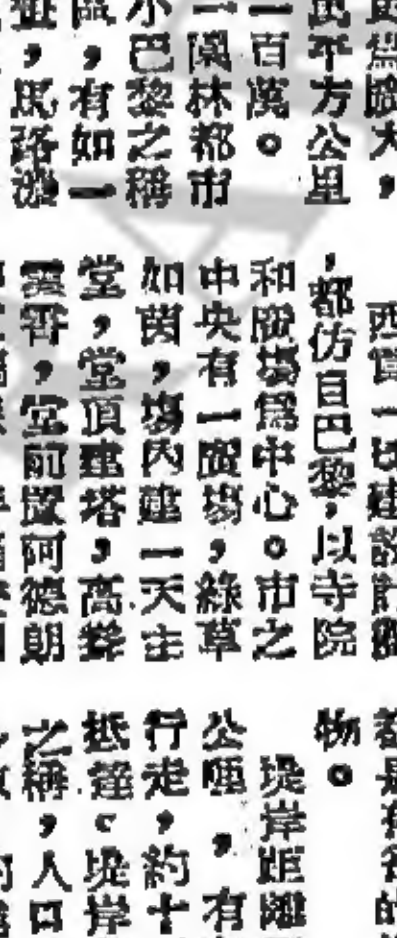 萬平方公里
一百萬。
一園林都市
小巴黎之稱
區,有如一
,馬路
西貢一切建設
,都仿自巴黎,以寺院
和廣場為中心。市之
中央有一廣場,綠草
如茵,場內建一天主
堂,堂頂建塔,高聳
雲霄,堂前置阿德朗
都是有
物。
堤岸距
公里,有
行走,約十
抵達。堤岸
之稱,人口